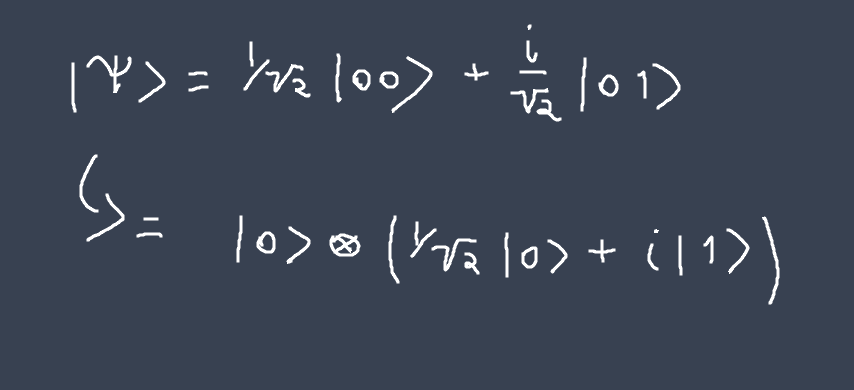 |Ψ⟩ = 1/√2 |00⟩ + i/√2 |01⟩
↳ = |0⟩ ⊗ (1/√2 |0⟩ + i|1⟩)